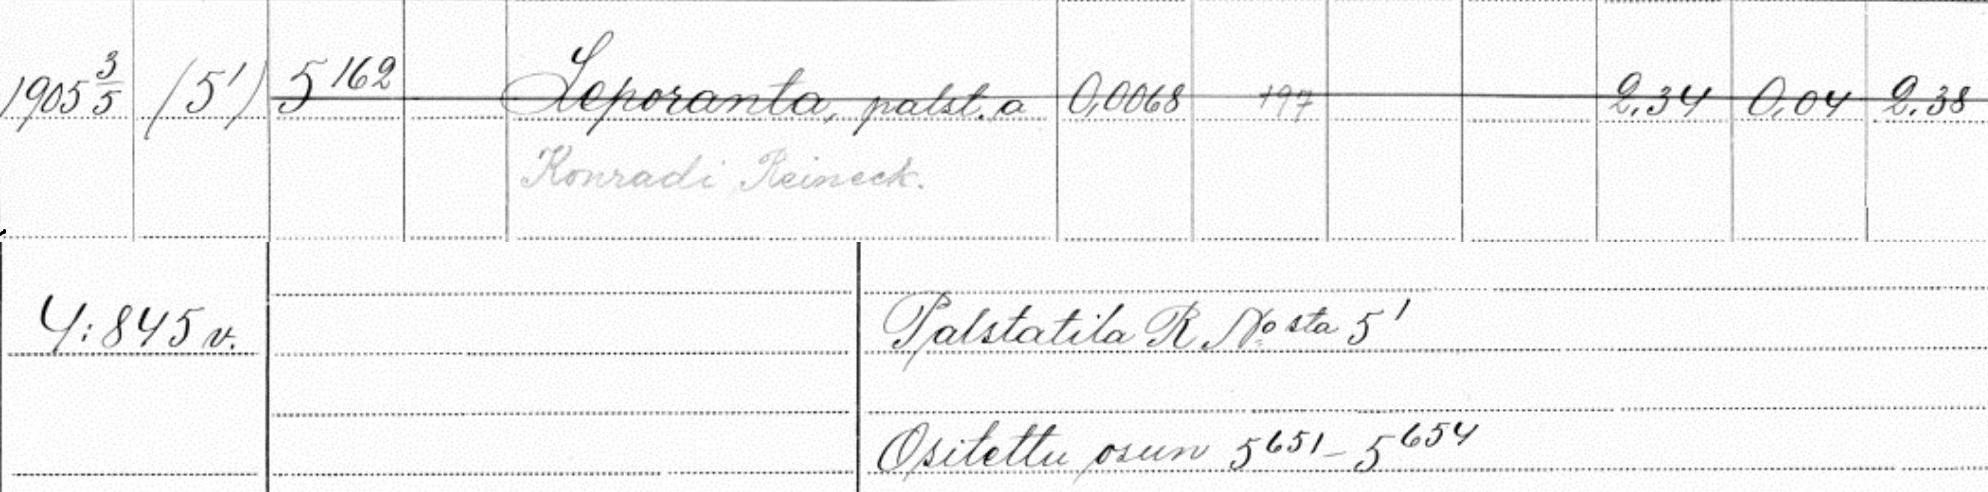 1905 3/5 (5¹) 5¹⁶² Leporanta, palst. a 0,0068 197 2,34 0,04 2,38
Konradi Reineck.
4:845 v. Palstatila R No sta 5¹
Ositettu osun 5⁶⁵¹–5⁶⁵⁴